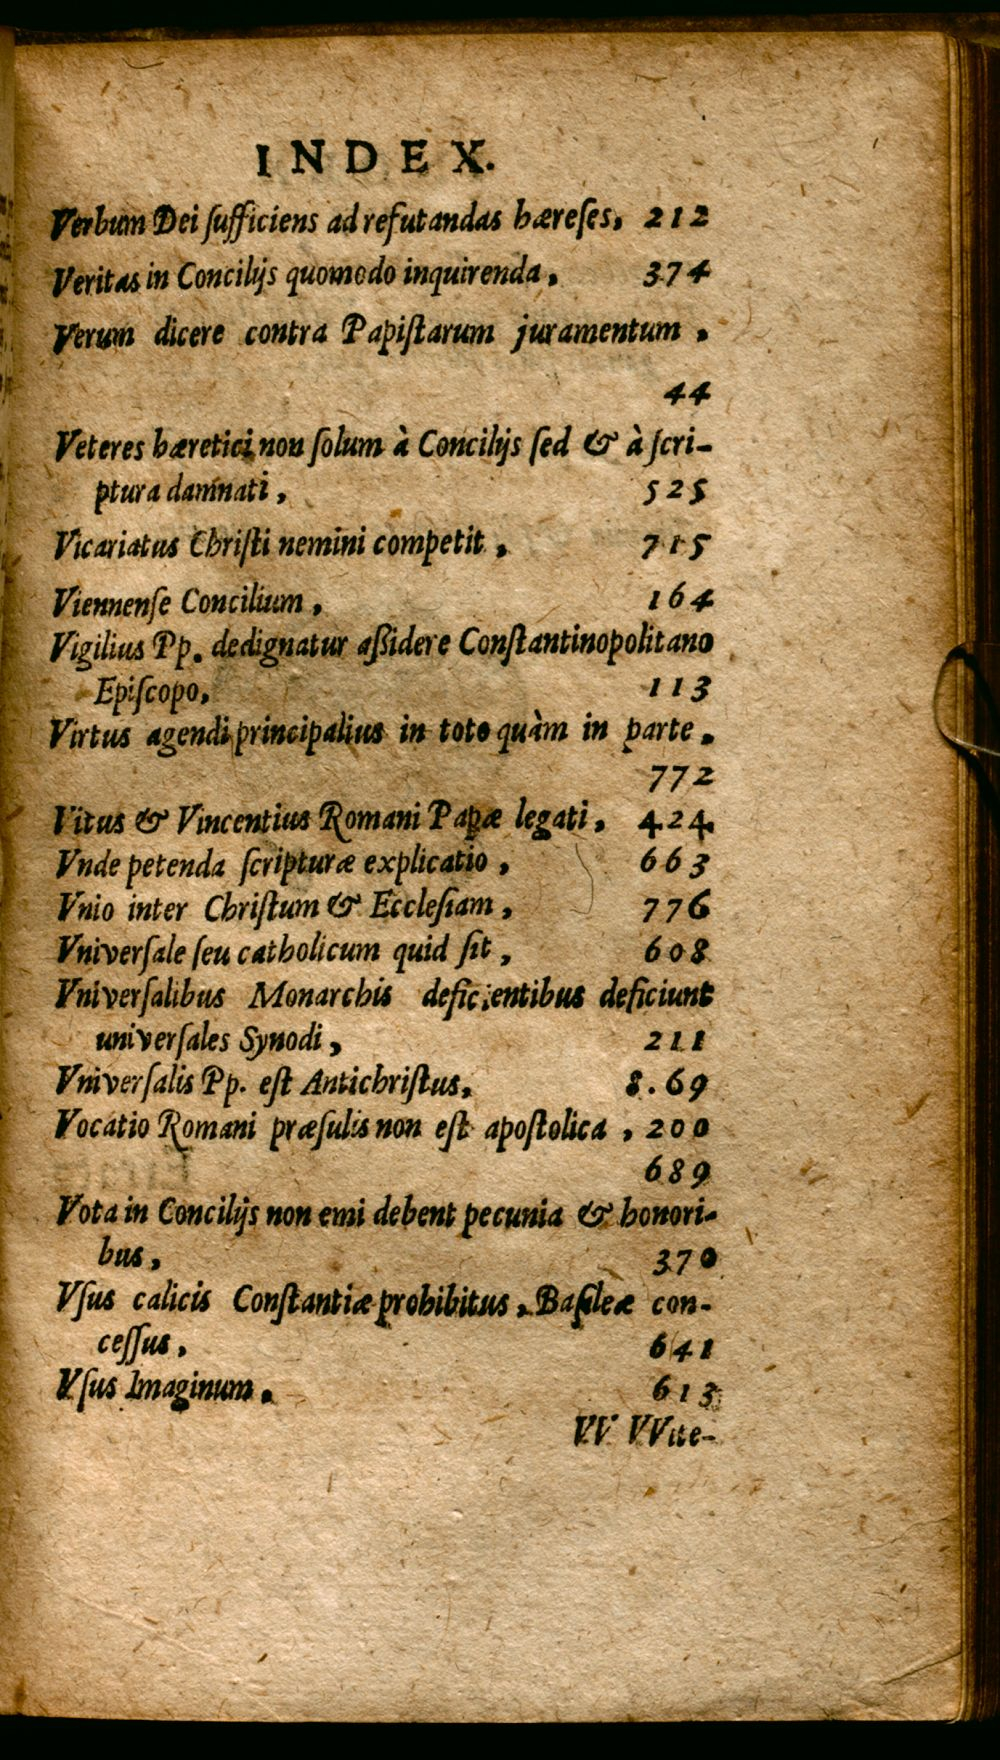 INDEX.
Verbum Dei ſufficiens ad refutandas hæreſes, 212
Veritas in Concilijs quomodo inquirenda, 374
Verum dicere contra Papiſtarum juramentum,
44
Veteres hæretici non ſolum à Concilijs ſed & à ſcri-
ptura damnati, 525
Vicariatus Chriſti nemini competit, 715
Viennenſe Concilium, 164
Vigilius Pp. dedignatur aſſidere Conſtantinopolitano
Epiſcopo, 113
Virtus agendi principalius in toto quàm in parte.
772
Vitus & Vincentius Romani Papæ legati, 424
Vnde petenda ſcripturæ explicatio, 663
Vnio inter Chriſtum & Eccleſiam, 776
Vniverſale ſeu catholicum quid ſit, 608
Vniverſalibus Monarchis deficientibus deficiunt
univerſales Synodi, 211
Vniverſalis Pp. eſt Antichriſtus, 8.69
Vocatio Romani præſulis non eſt apoſtolica, 200
689
Vota in Concilijs non emi debent pecunia & honori-
bus, 370
Vſus calicis Conſtantiæ prohibitus, Baſileæ con-
ceſſus, 641
Vſus Imaginum. 613
VV VVite-